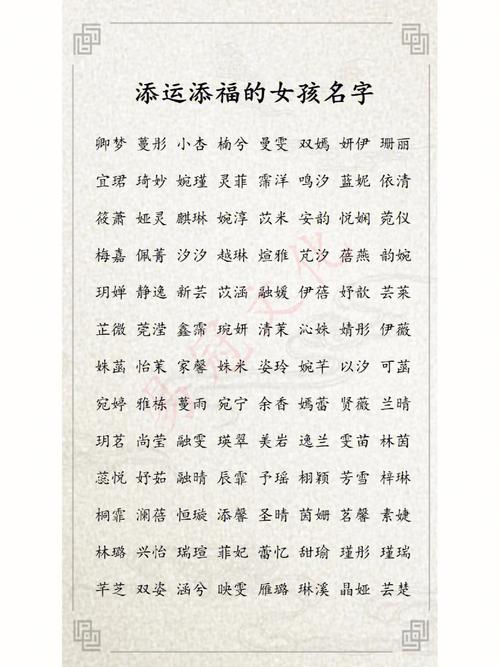 添运添福的女孩名字
卿梦 蔓彤 小杏 楠兮 曼雯 双嫣 妍伊 珊丽
宜珺 琦妙 婉瑾 灵菲 霈洋 鸣汐 蓝妮 依清
筱萧 娅灵 麒琳 婉淳 苡米 安韵 悦娴 菀仪
梅嘉 佩菁 汐汐 越琳 煊雅 芃汐 蓓燕 韵婉
玥婵 静逸 新芸 苡涵 融媛 伊蓓 妤歆 芸莱
芷微 莞滢 鑫霈 琬妍 清茉 沁姝 婧彤 伊薇
姝菡 怡茉 家馨 姝米 姿玲 婉芊 以汐 可菡
宛婷 雅栋 蔓雨 宛宁 余香 嫣蕾 贤薇 兰晴
玥茗 尚莹 融雯 瑛翠 美岩 逸兰 雯苗 林茵
蕊悦 妤茹 融晴 辰霏 予瑶 栩颖 芳雪 梓琳
桐霏 澜蓓 恒璇 添馨 圣晴 茵姗 茗馨 素婕
林璐 兴怡 瑞瑄 菲妃 蕾忆 甜瑜 瑾彤 瑾瑞
芊芝 双姿 涵兮 映雯 雁璐 琳溪 晶娅 芸楚